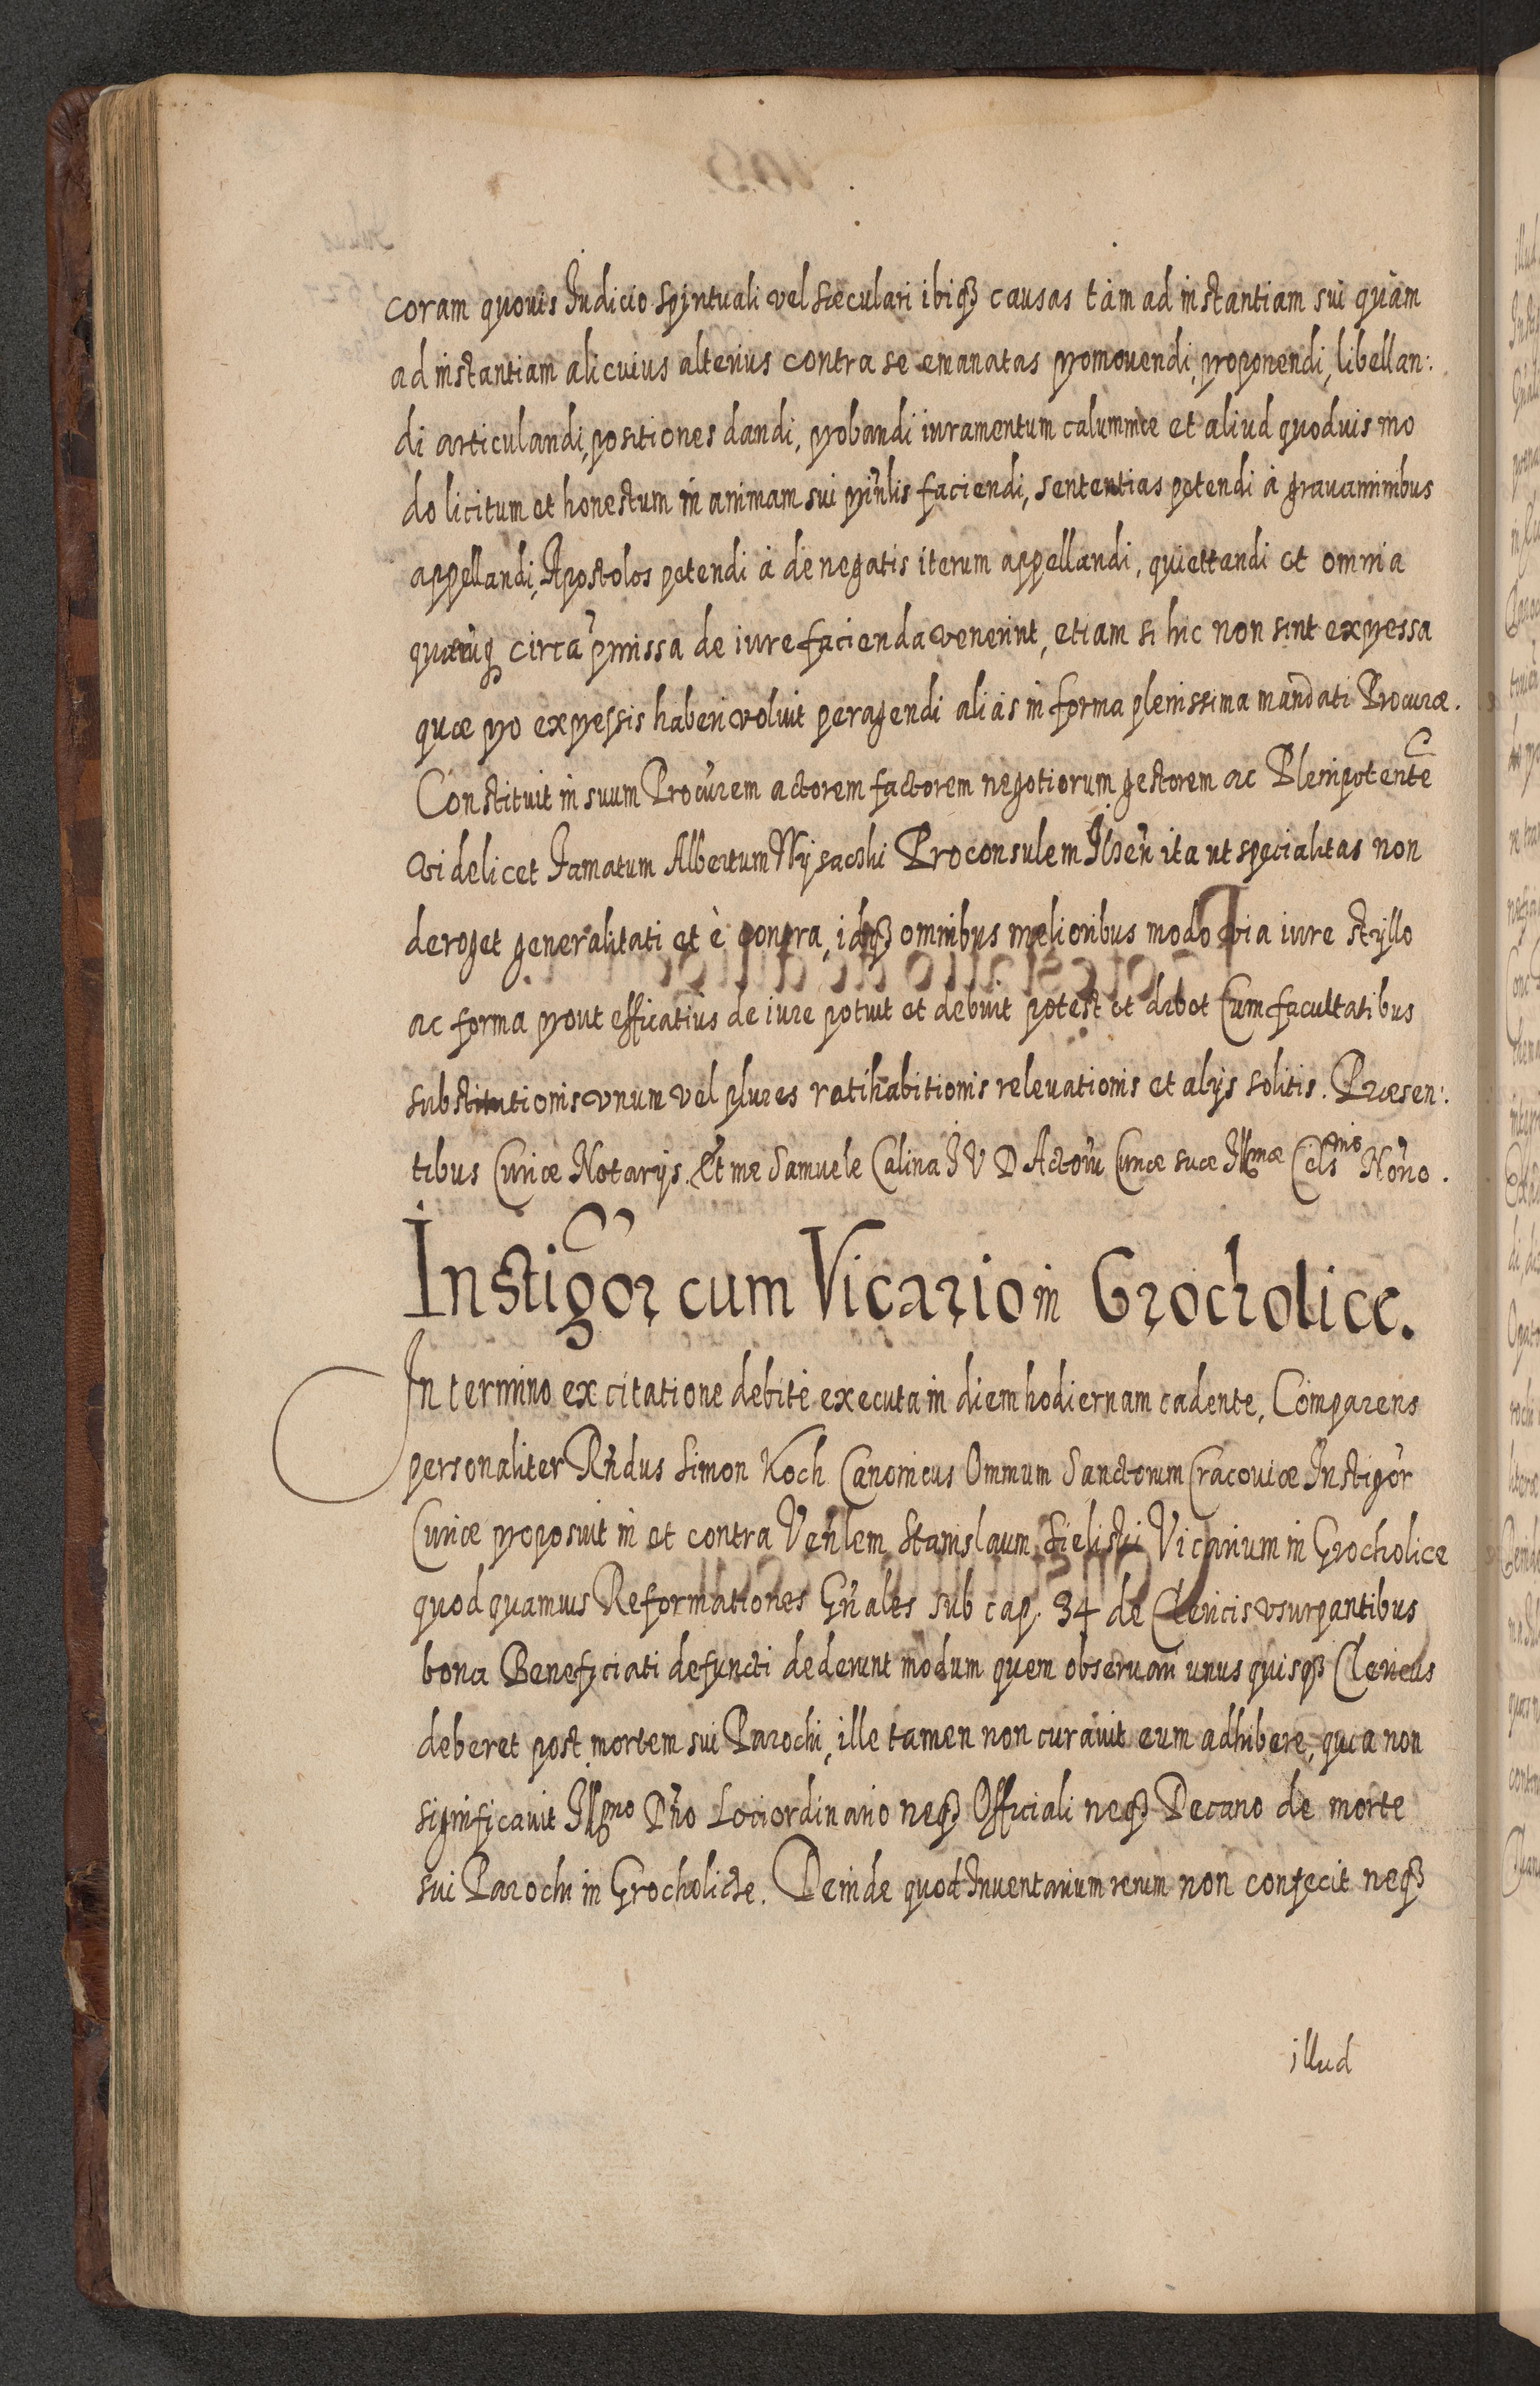 coram quovis Iudicio Spirituali vel sæculari ibiq́ꝫ causas tàm ad instantiam sui quàm
ad instantiam alicuius alterius contra se emanatas promouendi, proponendi, libellan:
di articulandi, positiones dandi, probandi iuramentum calumniæ et aliud quoduis mo
do licitum et honestum in animam sui prin̄lis faciendi, sententias petendi à grauaminibus
appellandi, Apostolos petendi à denegatis iterum appellandi, quiettandi et omnia
quæcūqꝫ circa p̄missa de iure facienda venerint, etiam si hic non sint expressa
quæ pro expressis haberi voluit peragendi aliàs in forma plenissima mandati Procuræ.
Constituit in suum Procūrem actorem factorem negotiorum gestorem ac Plenipotentē
videlicet Famatum Albertum Wysacki Proconsulem Ilzen̄ ita ut specialitas non
deroget generalitati et è contra, idqꝫ omnibus melioribus modo via iure styllo
ac forma prout efficatiùs de iure potuit et debuit potest et debet Cum facultatibus
substitutionis vnum vel plures ratihabitionis releuationis et alijs solitis. Præsen:
tibus Curiæ Notarijs. Et me Samuele Calina I V D Actorū Curiæ suæ Illmæ Cels<sup>nis</sup> Nōno.
Instigōr cum Vicario in Grocholice.
In termino ex citatione debitè executa in diem hodiernam cadente, Comparens
personaliter Rn̄dus Simon Koch Canonicus Omnium Sanctorum Cracouiæ Instigōr
Curiæ proposuit in et contra Ven̄lem Stanislaum Sielski Vicarium in Grocholice
quod quamuis Reformationes Gn̄ales sub cap. 34 de Clericis vsurpantibus
bona Beneficiati defuncti dederunt modum quem obseruari unusquisqꝫ Clericus
deberet post mortem sui Parochi, ille tamen non curauit eum adhibere, quia non
significauit Illmo Dn̄o Lociordinario neqꝫ Officiali neqꝫ Decano de morte
sui Parochi in Grocholicze. Deinde quod Inuentarium rerum non confecit neqꝫ
illud